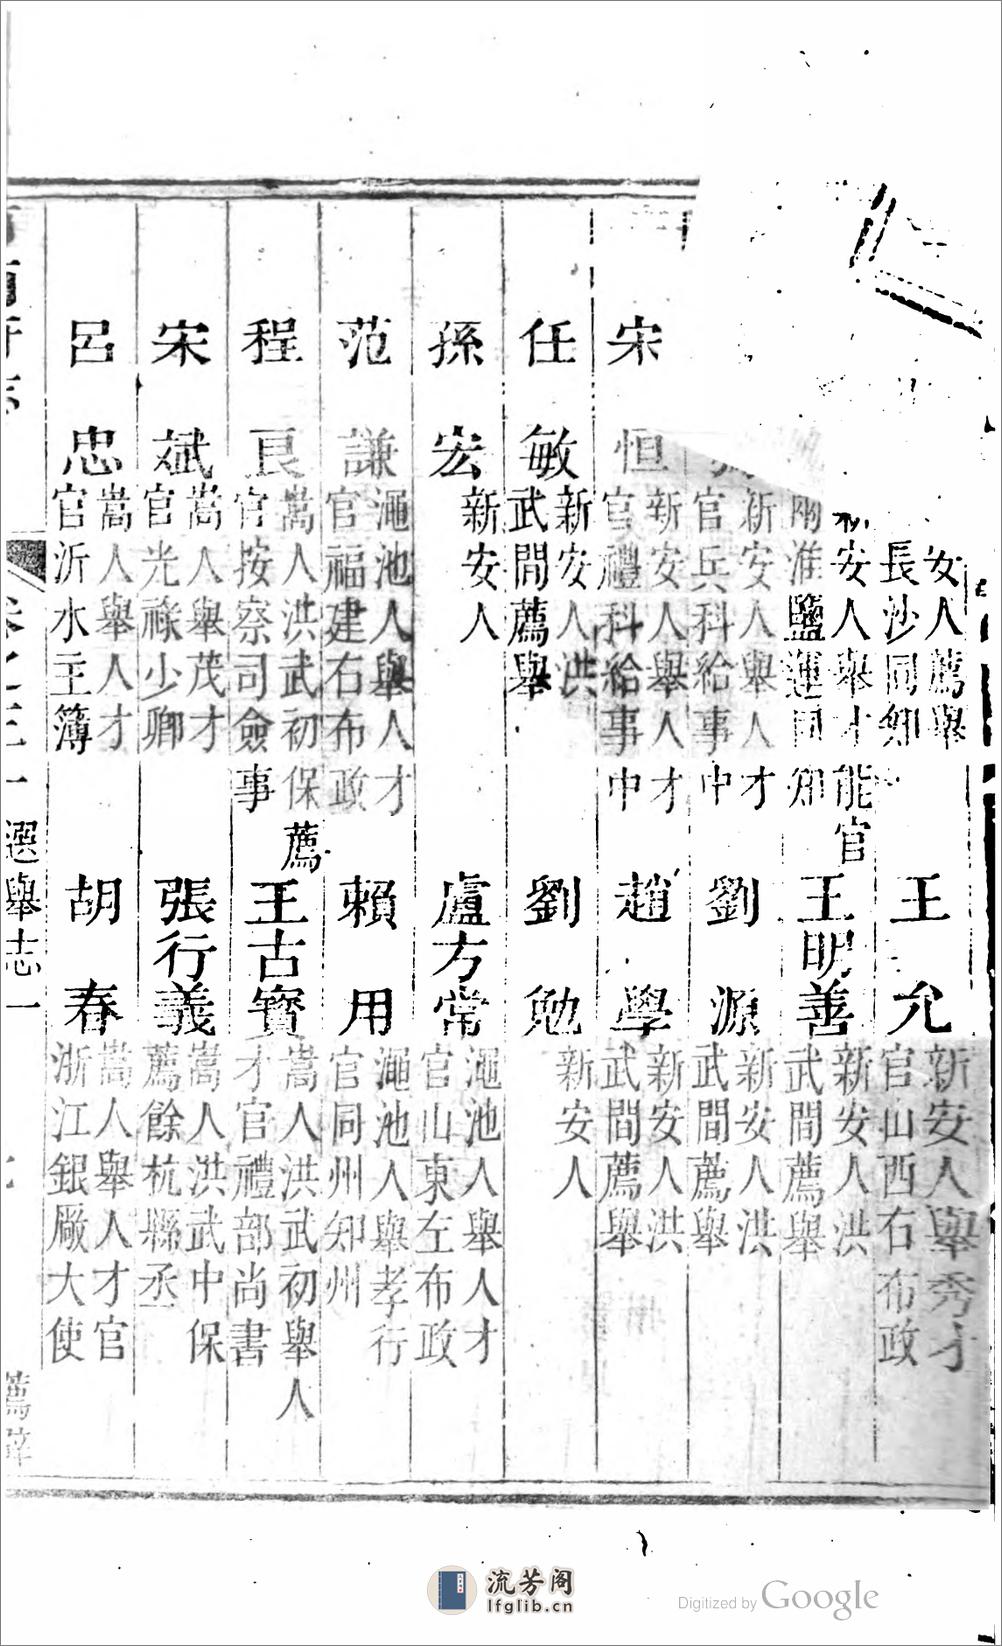 安人薦舉
長沙同知
王允
新安人舉秀才
官山西右布政
新安人舉才能官
兩淮鹽運同知
王明善
新安人洪
武間薦舉
新安人舉人才
官兵科給事中
劉源
新安人洪
武間薦舉
宋恒
新安人舉人才
官禮科給事中
趙學
新安人洪
武間薦舉
任敏
新安人洪
武間薦舉
劉勉
新安人
孫宏
新安人
盧方常
澠池人舉人才
官山東左布政
范謙
澠池人舉人才
官福建右布政
賴用
澠池人舉孝行
官同州知州
程良
嵩人洪武初保薦
官按察司僉事
王古寶
嵩人洪武初舉人
才官禮部尚書
宋斌
嵩人舉茂才
官光祿少卿
張行義
嵩人洪武中保
薦餘杭縣丞
呂忠
嵩人舉人才
官沂水主簿
胡春
嵩人舉人才官
浙江銀廠大使
選舉志一
薦辟
流芳阁
lfglib.cn
Digitized by Google